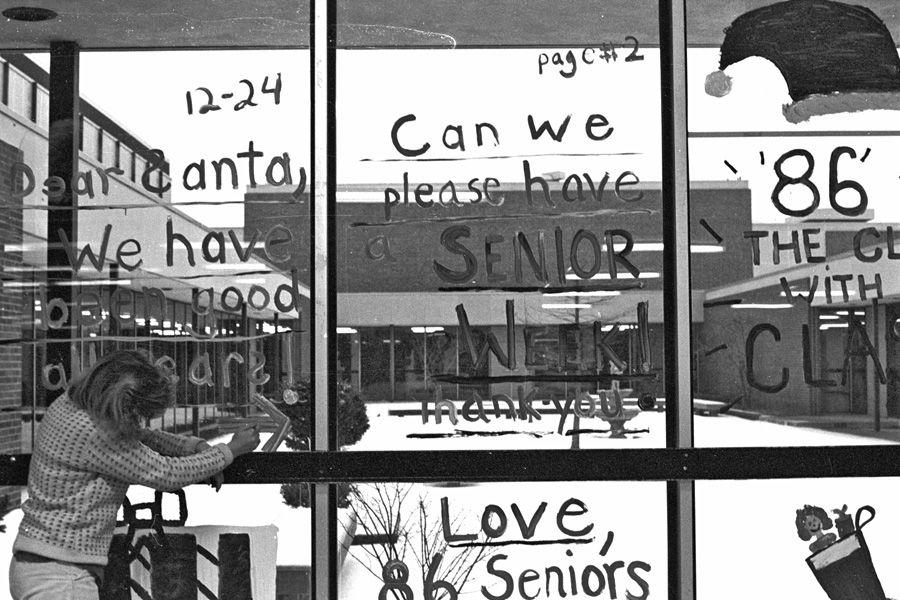 12-24
Dear Santa,
We have
been good
all years!
page #2
Can we
please have
a SENIOR
WEEK!
Thank-you
Love,
86 Seniors
'86'
THE CL
WiTH
CLAS